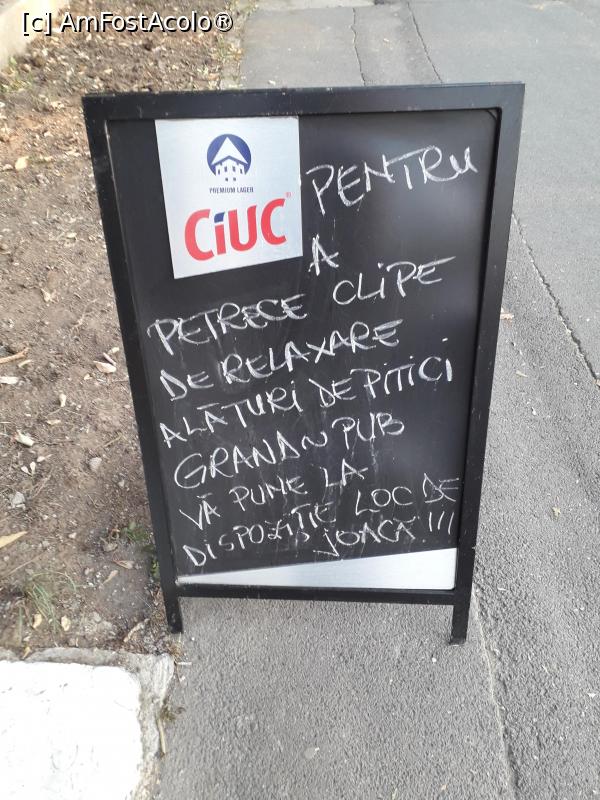 [c] AmFostAcolo®
PREMIUM LAGER
CIUC®
PENTRU
A
PETRECE CLIPE
DE RELAXARE
ALĂTURI DE PITICI
GRAND PUB
VĂ PUNE LA
DISPOZIȚIE LOC DE
JOACĂ!!!